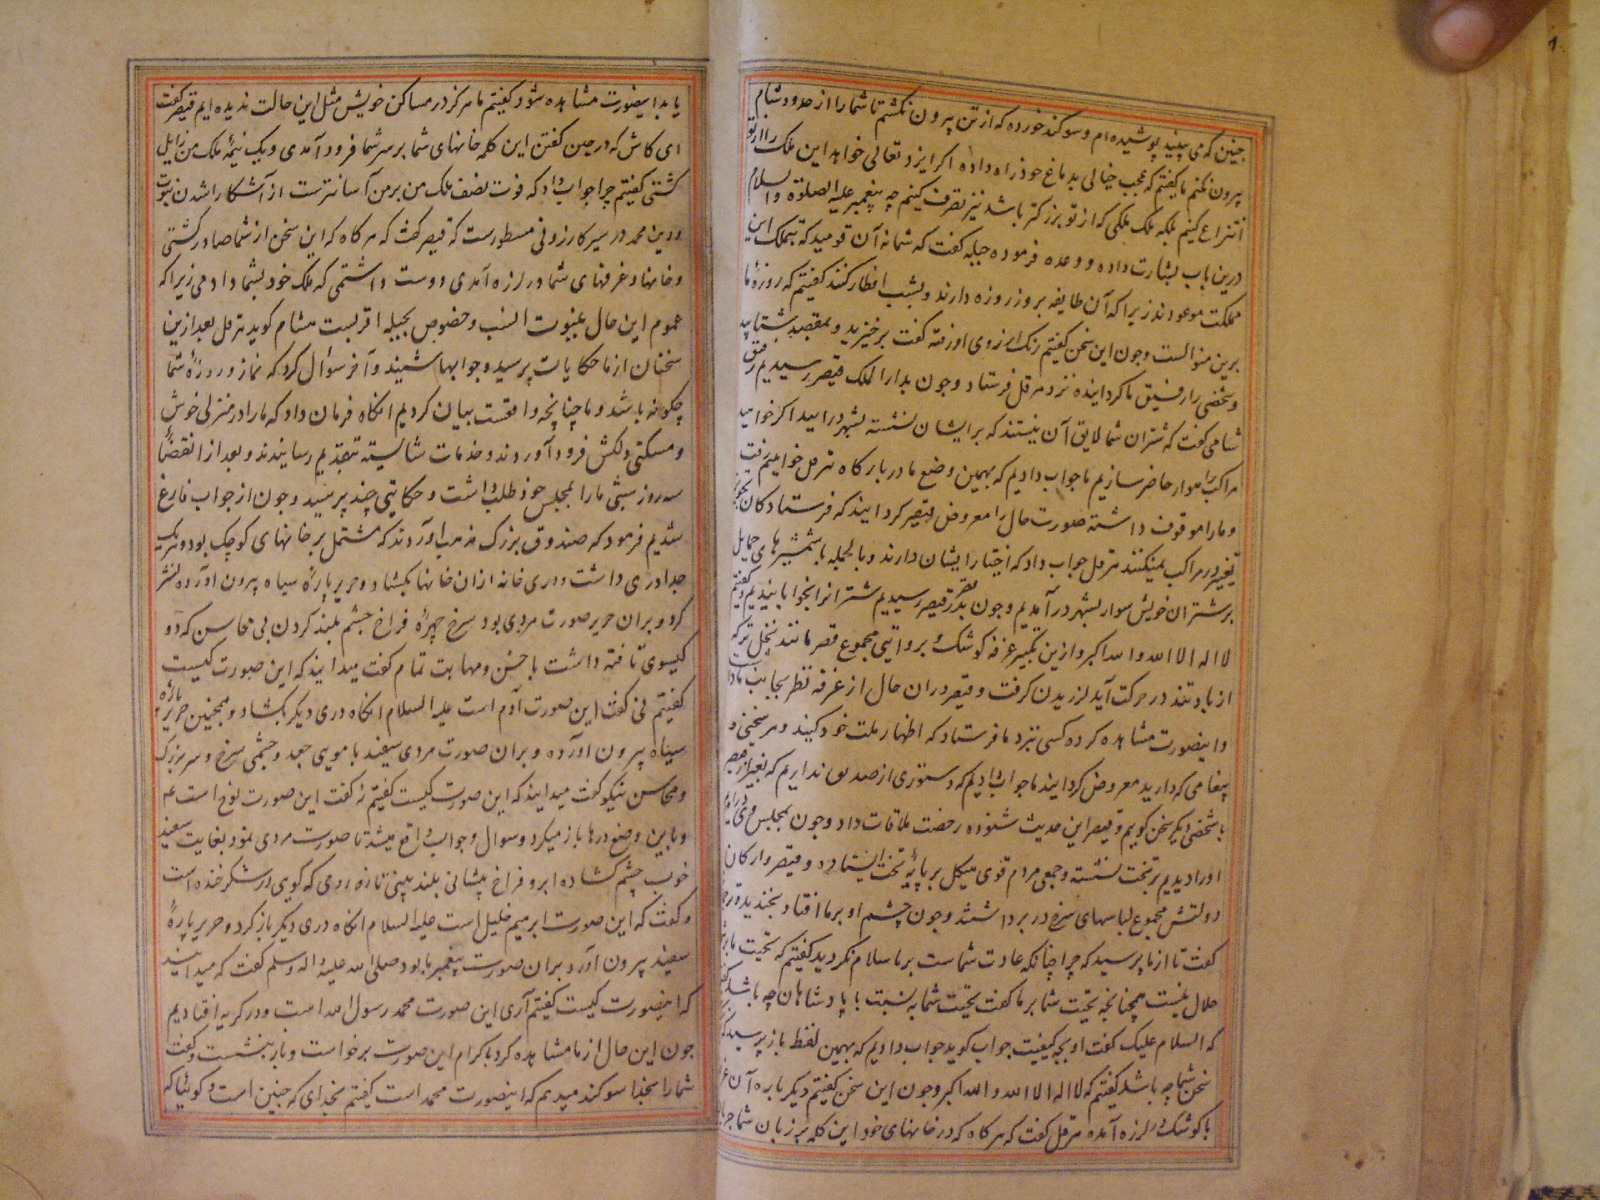 چنین که می بینید پوشیده ام و سوکند خورده که از تن بیرون نکشم تا شما را از حدود شام
بیرون نکنم ما کفتیم که عجب خیالی بدماغ خود راه داده اکر ایزد تعالی خواهد این ملک را از تو
انتزاع کنیم بلکه ملک ملکی که از تو بزرکتر باشد نیز تصرف کنیم چه پیغمبر علیه الصلوة والسلام
درین باب بشارت داده و وعده فرموده جبله کفت که شما نه آن قومید که بتملک این
مملکت موعودند زیرا که آن طایفه بروز روزه دارند و بشب افطار کنند کفتیم که روزهٔ ما
برین منوالست و چون این سخن کفتیم رنک از روی او رفته کفت برخیزید و بمقصد بشتابید
و شخصی را رفیق ما کردانیده نزد هرقل فرستاد و چون بدار الملک قیصر رسیدیم رفیق
شامی کفت که شتران شما لایق آن نیستند که بر ایشان نشسته بشهر درایید اکر خواهید
مراکب راهوار حاضر سازیم ما جواب دادیم که بهمین وضع ما در بارکاه هرقل خواهیم رفت
و ما را موقوف داشته صورت حال را معروض قیصر کردانیدند که فرستادکان
تغییر در مراکب نمیکنند هرقل جواب داد که اختیار ایشان دارند و بالجمله با شمشیرهای حمایل
بر شتران خویش سوار بشهر درآمدیم و چون بقصر قیصر رسیدیم شترانرا بخوابانیدیم و کفتیم
لا اله الا الله والله اکبر و ازین تکبیر غرفه کوشک و بروایتی مجموع قصر مانند نخل تر که
از باد تند در حرکت آید لرزیدن کرفت و قیصر دران حال از غرفه نظر بجانب ما داشت
و اینصورت مشاهده کرده کسی نزد ما فرستاد که اظهار ملت خود کنید و هر سخنی و
پیغامی که دارید معروض کردانید ما جواب دادیم که دستوری از صدیق نداریم که بغیر از قیصر
با شخصی دیکر سخن کوییم و قیصر این حدیث شنوده رخصت ملاقات داد و چون بمجلس وی درآمدیم
او را دیدیم بر تخت نشسته و جمعی مردم قوی هیکل بر پایهٔ تخت ایستاده و قیصر و ارکان
دولتش مجموع لباسهای سرخ در بر داشتند و چون چشم او بر ما افتاد بخندید و
کفت تا از ما پرسید که چرا چنانکه عادت شماست بر ما سلام نکردید کفتیم که تحیت ما بر شما
حلال نیست همچنانچه تحیت شما بر ما کفت تحیت شما به نسبت با پادشاهان چه باشد کفتیم
که السلام علیک کفت او بچه کیفیت جواب کوید جواب دادیم که بهمین لفظ باز پرسید که
سخن شما چه باشد کفتیم که لا اله الا الله والله اکبر و چون این سخن کفتیم دیکر باره آن
با کوشک در لرزه آمده هرقل کفت که هر کاه که در خانهای خود این کلمه بر زبان شما
یابد اینصورت مشاهده شود کفتیم ما هرکز در مساکن خویش مثل این حالت ندیده ایم قیصر کفت
ای کاش که در حین کفتن این کلمه خانهای شما بر سر شما فرود آمدی و یک نیمهٔ ملک من زایل
کشتی کفتیم چرا جواب داد که فوت نصف ملک من بر من آسانترست از آشکارا شدن نبوت
و دین محمد در سیر کازرونی مسطورست که قیصر کفت که هر کاه که این سخن از شما صادر کشتی
و خانها و غرفهای شما در لرزه آمدی دوست داشتمی که ملک خود بشما دادمی زیرا که
عموم این حال بنبوت انسب و خصوص بحیله اقربست هشام کوید هرقل بعد ازین
سخنان از ما حکایات پرسید و جوابها شنید و آخر سؤال کرد که نماز و روزهٔ شما
چکونه باشد و ما چنانچه واقعست بیان کردیم آنکاه فرمان داد که ما را در منزلی خوش
و مسکنی دلکش فرود آوردند و خدمات شایسته بتقدیم رسانیدند و بعد از انقضاء
سه روز شبی ما را بمجلس خود طلب داشت و حکایتی چند پرسید و چون از جواب فارغ
شدیم فرمود که صندوق بزرک مذهب آوردند که مشتمل بر خانهای کوچک بود و هر یک
جدا دری داشت و دری خانه ازان خانها بکشاد و حریر پارهٔ سیاه بیرون آورده نشر
کرد و بران حریر صورت مردی بود سرخ چهرهٔ فراخ چشم بلند کردن بی محاسن که دو
کیسوی تافته داشت با حسن و مهابت تمام کفت میدانید که این صورت کیست
کفتیم نی کفت این صورت آدم است علیه السلام آنکاه دری دیکر بکشاد و همچنین حریر پارهٔ
سیاه بیرون آورده و بران صورت مردی سفید با مویی جعد و چشمی سرخ و سر بزرک
و محاسن نیکو کفت میدانید که این صورت کیست کفتیم نه کفت این صورت نوح است عم
و باین وضع درها باز میکرد و سوال و جواب واقع میشد تا صورت مردی نمود بغایت سفید
خوب چشم کشاده ابرو فراخ پیشانی بلند بینی تازه روی که کویی در شکر خنده است
و کفت که این صورت ابرهیم خلیل است علیه السلام آنکاه دری دیکر باز کرد و حریر پارهٔ
سفید بیرون آورد بران صورت پیغمبر ما بود صلی الله علیه و اله وسلم کفت که میدانید
که اینصورت کیست کفتیم آری این صورت محمد رسول الله است و در کریه افتادیم
چون این حال از ما مشاهده کرد باکرام این صورت برخواست و باز بنشست و کفت
شما را بخدا سوکند میدهم که اینصورت محمد است کفتیم بخدای که چنین است و کوئیا که